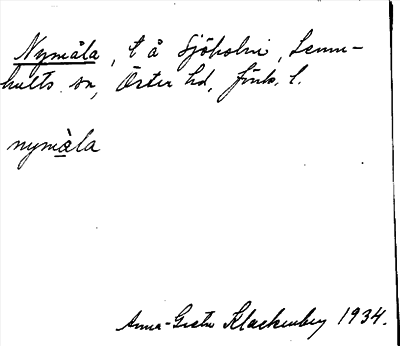 Nymåla, t å Sjöholm, Lenn-
hults sn, Öster hd, Jönk. l.
nymàla
Anna-Greta Klackenberg 1934.